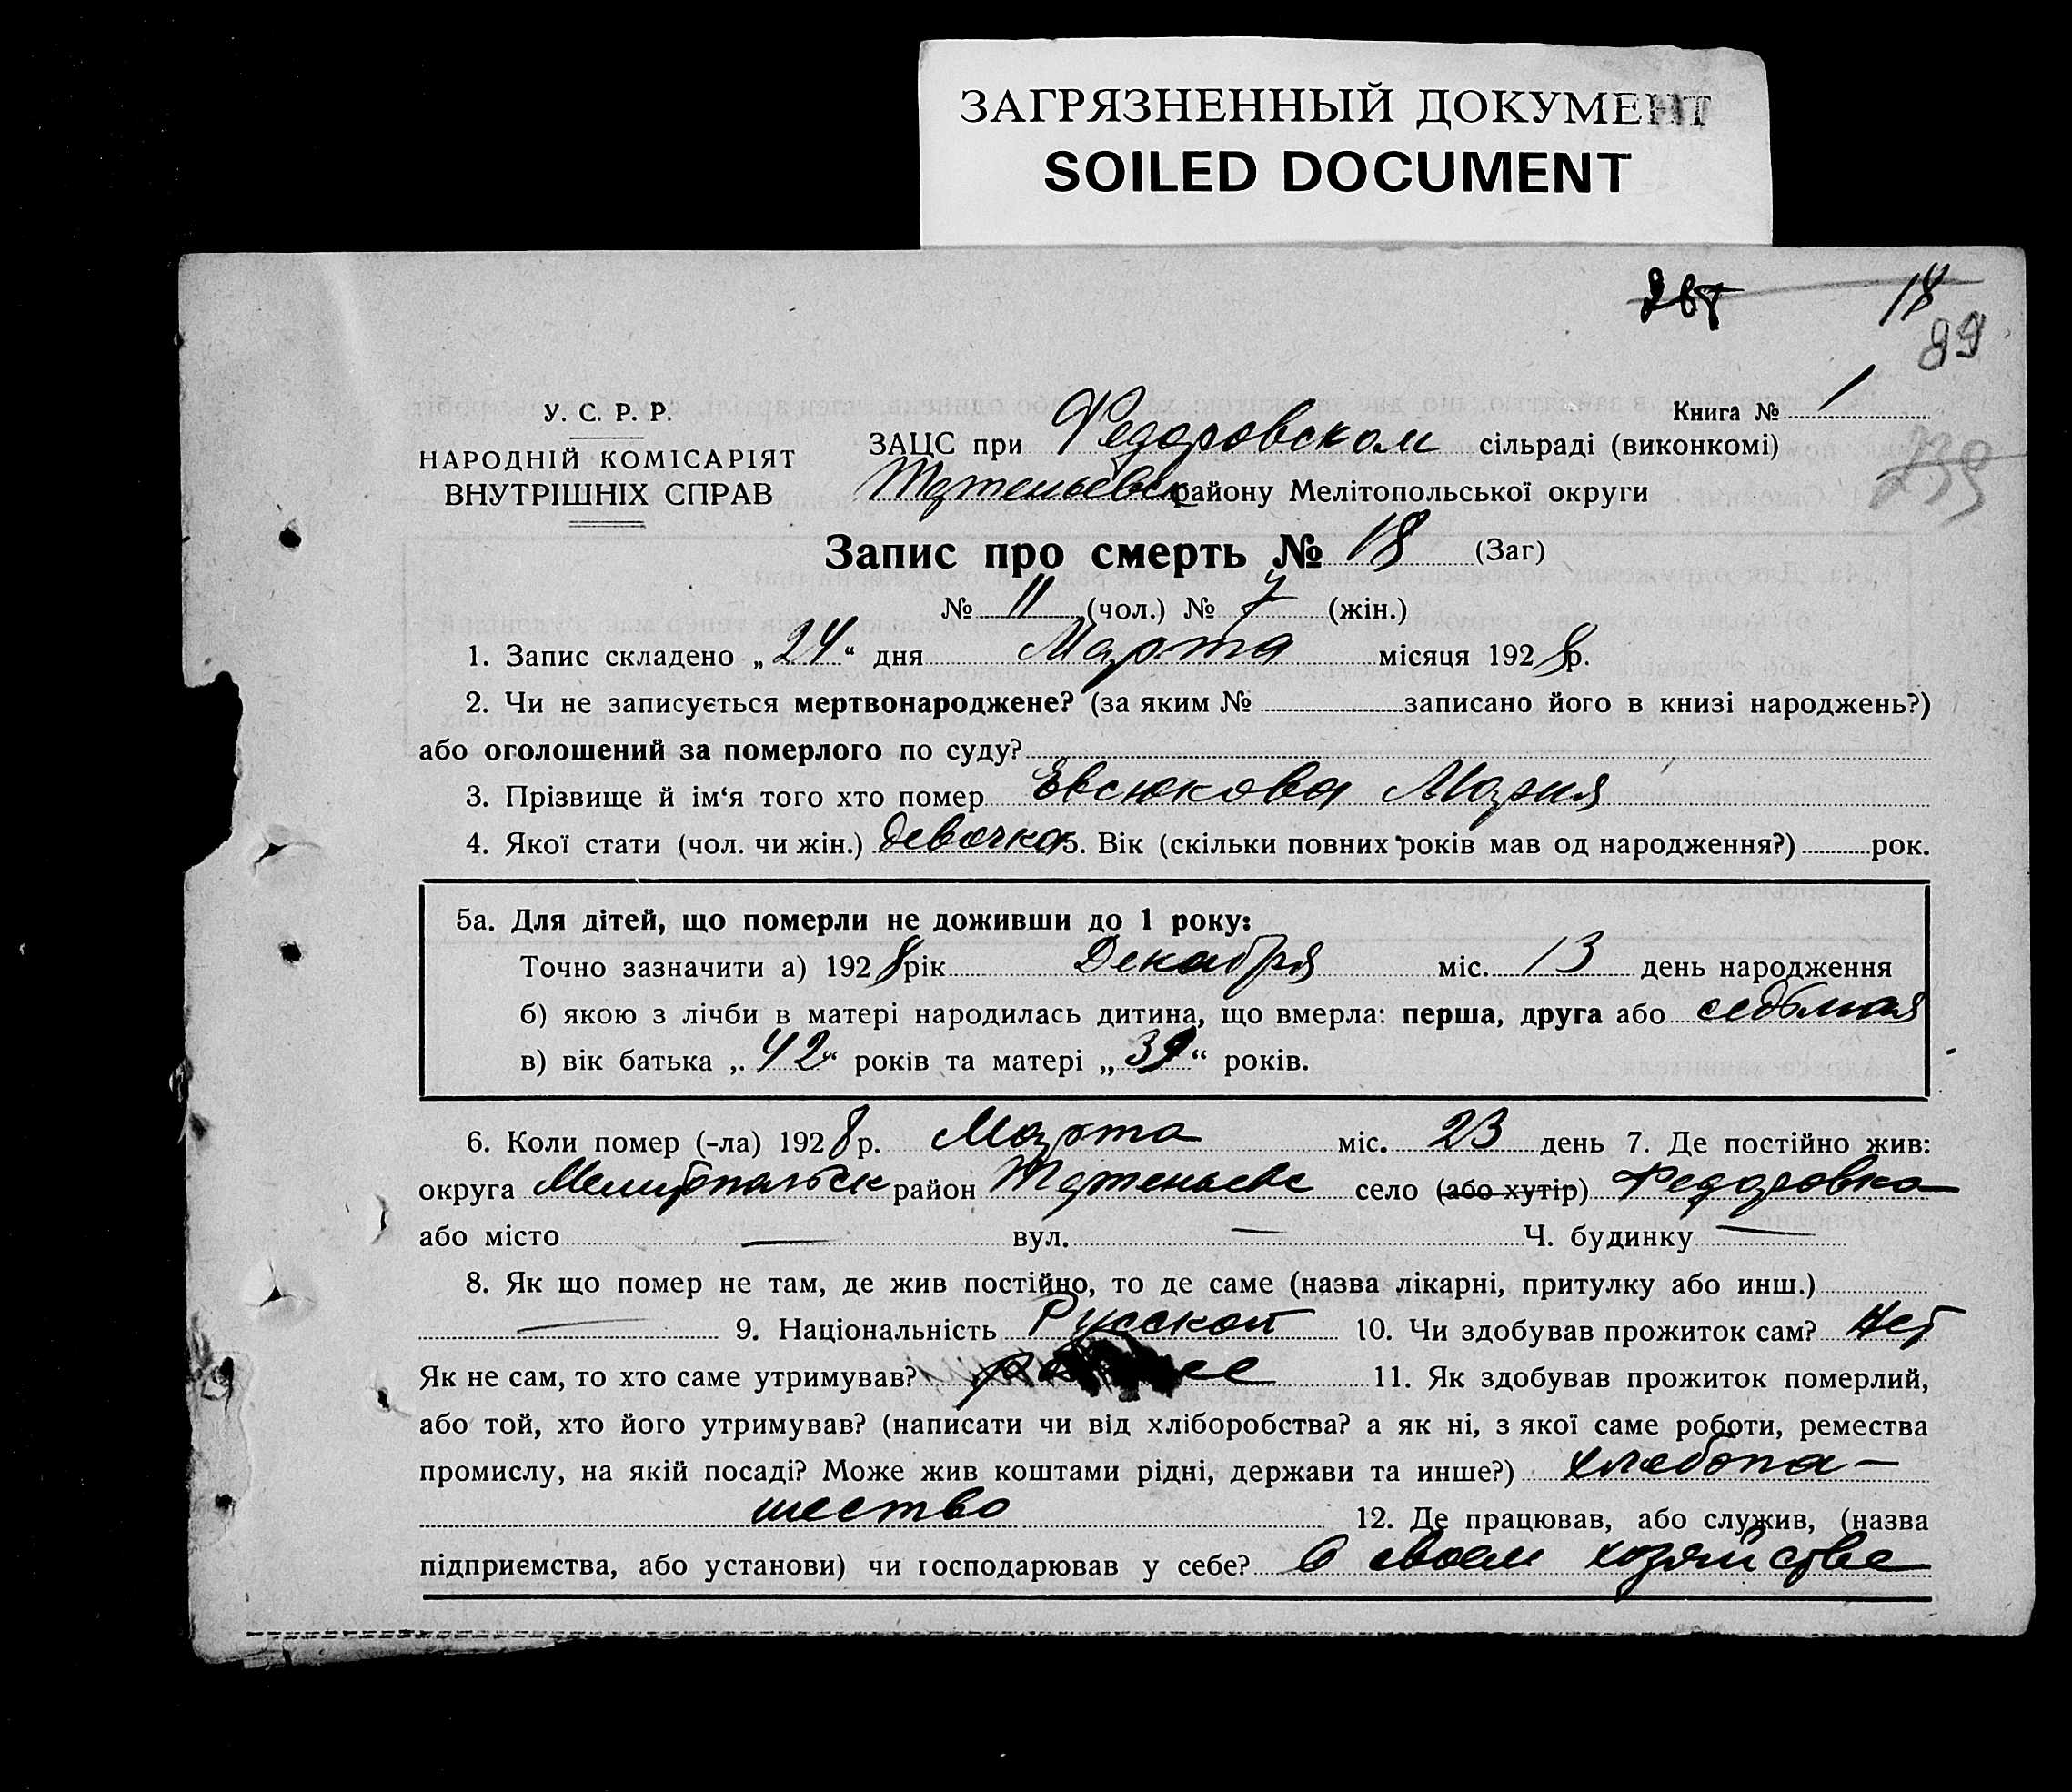 ЗАГРЯЗНЕННЫЙ ДОКУМЕНТ
SOILED DOCUMENT
18
89
У. С. Р. Р.
НАРОДНІЙ КОМІСАРІЯТ
ВНУТРІШНІХ СПРАВ
Книга № 1
ЗАЦС при Федоровском сільраді (виконкомі)
району Мелітопольської округи
239
Запис про смерть № 18 (Заг)
№ 11 (чол.) № 7 (жін.)
1. Запис складено „24“ дня Марта місяця 1928р.
2. Чи не записується мертвонароджене? (за яким № записано його в книзі народжень?)
або оголошений за померлого по суду?
3. Прізвище й ім‘я того хто помер Евсюкова Мария
4. Якої стати (чол. чи жін.) девочка 5. Вік (скільки повних років мав од народження?) рок.
5а. Для дітей, що померли не доживши до 1 року:
Точно зазначити а) 1928 рік Декабря міс. 13 день народження
б) якою з лічби в матері народилась дитина, що вмерла: перша, друга або седьмая
в) вік батька „42“ років та матері „39“ років.
6. Коли помер (-ла) 1928р. Марта міс. 23 день 7. Де постійно жив:
округа Мелитопольск район село (або хутір) Федоровка
або місто — вул. — Ч. будинку —
8. Як що помер не там, де жив постійно, то де саме (назва лікарні, притулку або инш.)
— 9. Національність Русской 10. Чи здобував прожиток сам? Нет
Як не сам, то хто саме утримував? 11. Як здобував прожиток померлий,
або той, хто його утримував? (написати чи від хліборобства? а як ні, з якої саме роботи, ремества
промислу, на якій посаді? Може жив коштами рідні, держави та инше?) хлебопа-
шество 12. Де працював, або служив, (назва
підприємства, або установи) чи господарював у себе? В своем хозяйстве